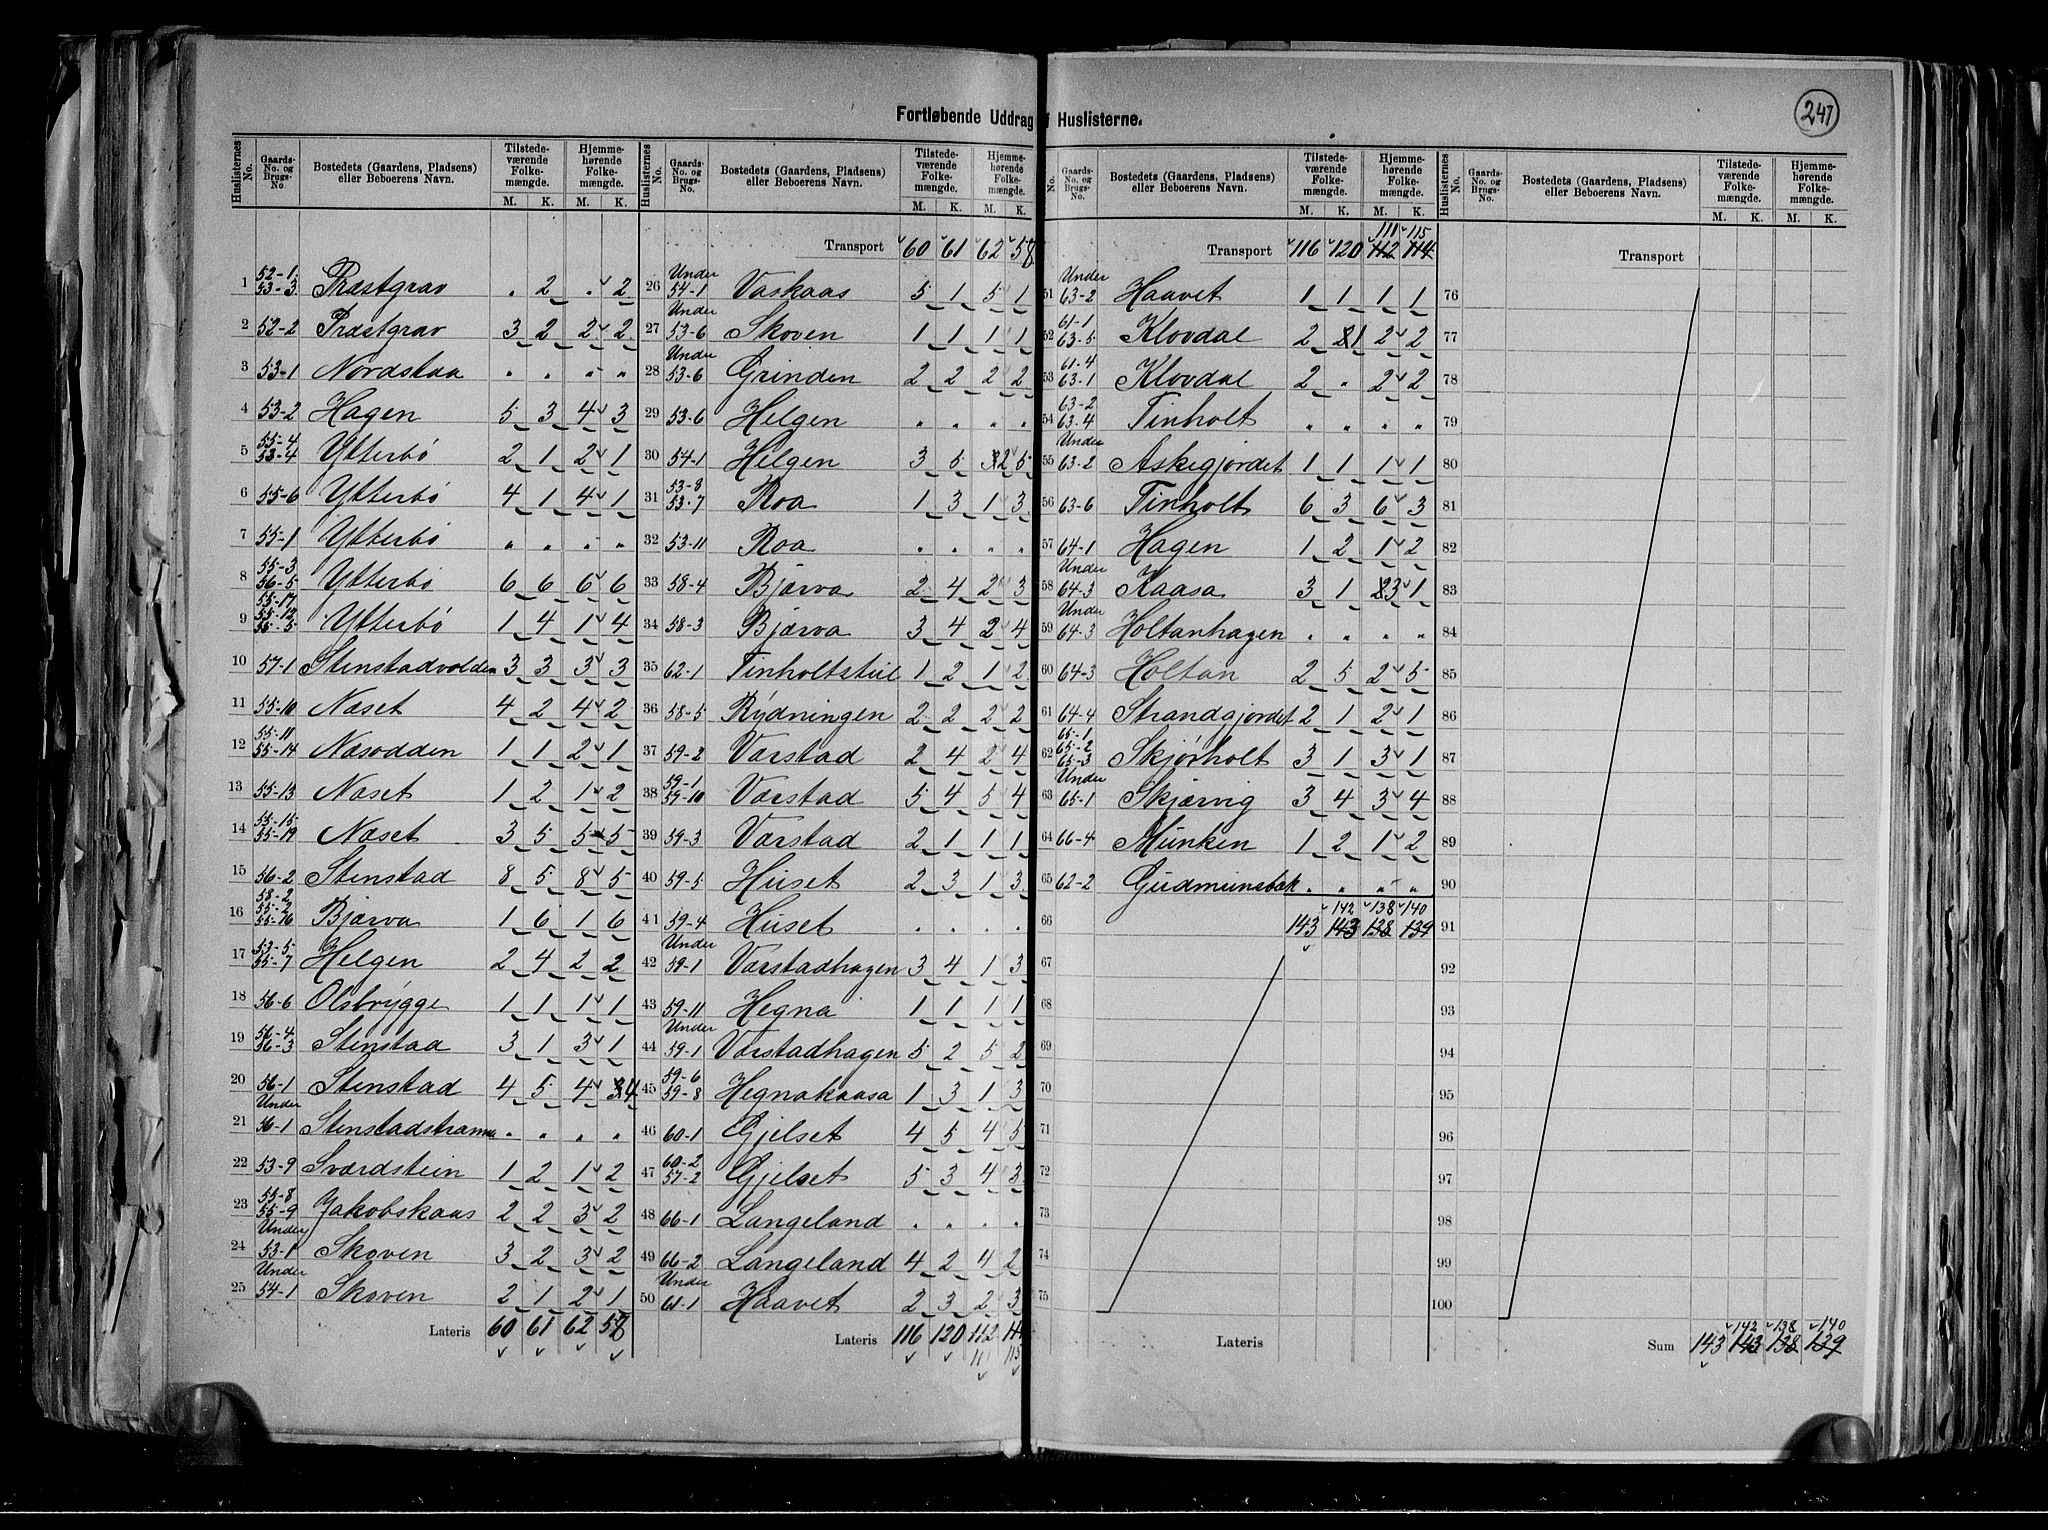 247
Fortløbende Uddrag f Huslisterne.
Huslisternes No. Gaards-No. og Brugs-No. Bostedets (Gaardens, Pladsens) eller Beboerens Navn. Tilstede-værende Folke-mængde. M. K. Hjemme-hørende Folke-mængde. M. K.
1 52-1 53-3 Præstgrav . 2 . 2
2 52-2 Præstgrav 3 2 2 2
3 53-1 Nordstaa " " " "
4 53-2 Hagen 5 3 4 3
5 55-4 53-4 Ytterbø 2 1 2 1
6 55-6 Ytterbø 4 1 4 1
7 55-1 Ytterbø " " " "
8 55-3 56-5 Ytterbø 6 6 6 6
9 55-17 55-12 55-5 Ytterbø 1 4 1 4
10 57-1 Stenstadvolden 3 3 3 3
11 55-10 Næset 4 2 4 2
12 55-11 55-14 Næsodden 1 1 2 1
13 55-13 Næset 1 2 1 2
14 55-15 55-19 Næset 3 5 5 5
15 56-2 Stenstad 8 5 8 5
16 58-2 55-2 55-16 Bjærva 1 6 1 6
17 53-5 55-7 Helgen 2 4 2 2
18 56-6 Olsbrygge 1 1 1 1
19 56-4 56-3 Stenstad 3 1 3 1
20 56-1 Stenstad 4 5 4 4
21 Under 56-1 Stenstadstrann " " " "
22 53-9 Sværdstein 1 2 1 2
23 55-8 55-9 Jakobskaas 2 2 3 2
24 Under 53-1 Skoven 3 2 3 2
25 Under 54-1 Skoven 2 1 2 1
Lateris 60 61 62 58
Huslisternes No. Gaards-No. og Brugs-No. Bostedets (Gaardens, Pladsens) eller Beboerens Navn. Tilstede-værende Folke-mængde. M. K. Hjemme-hørende Folke-mængde. M. K.
Transport 60 61 62 58
26 Under 54-1 Vaskaas 5 1 5 1
27 Under 53-6 Skoven 1 1 1 1
28 Under 53-6 Grinden 2 2 2 2
29 53-6 Helgen " " " "
30 54-1 Helgen 3 5 2 5
31 53-8 53-7 Roa 1 3 1 3
32 53-11 Roa . . . .
33 58-4 Bjærva 2 4 2 3
34 58-3 Bjærva 3 4 2 4
35 62-1 Tinholtstul 1 2 1 2
36 58-5 Rydningen 2 2 2 2
37 59-2 Værstad 2 4 2 4
38 59-1 57-10 Værstad 5 4 5 4
39 59-3 Værstad 2 1 1 1
40 59-5 Huset 2 3 1 3
41 59-4 Huset . . . .
42 Under 59-1 Værstadhagen 3 4 1 3
43 59-11 Hegna 1 1 1 1
44 Under 59-1 Værstadhagen 5 2 5 2
45 59-6 59-8 Hegnakaasa 1 3 1 3
46 60-1 Gjelset 4 5 4 5
47 60-2 57-2 Gjelset 5 3 4 3
48 66-1 Langeland . " . .
49 66-2 Langeland 4 2 4 2
50 Under 61-1 Haavet 2 3 2 3
Lateris 116 120 112 114
111 115
No. Gaards-No. og Brugs-No. Bostedets (Gaardens, Pladsens) eller Beboerens Navn. Tilstede-værende Folke-mængde. M. K. Hjemme-hørende Folke-mængde. M. K.
111 115
Transport 116 120 112 114
51 Under 63-2 Haavet 1 1 1 1
52 61-1 63-5 Klovdal 2 1 2 2
53 61-4 63-1 Klovdal 2 " 2 2
54 63-2 63-4 Tinholt " " " "
55 Under 63-2 Askegjordet 1 1 1 1
56 63-6 Tinholt 6 3 6 3
57 64-1 Hagen 1 2 1 2
58 Under 64-3 Kaasa 3 1 3 1
59 Under 64-3 Holtanhagen " " " "
60 64-3 Holtan 2 5 2 5
61 64-4 Strandgjordet 2 1 2 1
62 65-1 65-2 65-3 Skjørholt 3 1 3 1
63 Under 65-1 Skjærvig 3 4 3 4
64 66-4 Munken 1 2 1 2
65 62-2 Gudmunsbæk " " " "
142 138 140
66 143 143 138 139
67
68
69
70
71
72
73
74
75
Lateris
Huslisternes No. Gaards-No. og Brugs-No. Bostedets (Gaardens, Pladsens) eller Beboerens Navn. Tilstede-værende Folke-mængde. M. K. Hjemme-hørende Folke-mængde. M. K.
Transport
76
77
78
79
80
81
82
83
84
85
86
87
88
89
90
91
92
93
94
95
96
97
98
99
100
142 138 140
Sum 143 143 138 139